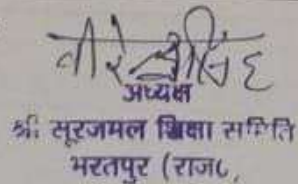 वीरेन्द्र सिंह
अध्यक्ष
श्री सूरजमल शिक्षा समिति
भरतपुर (राज०)